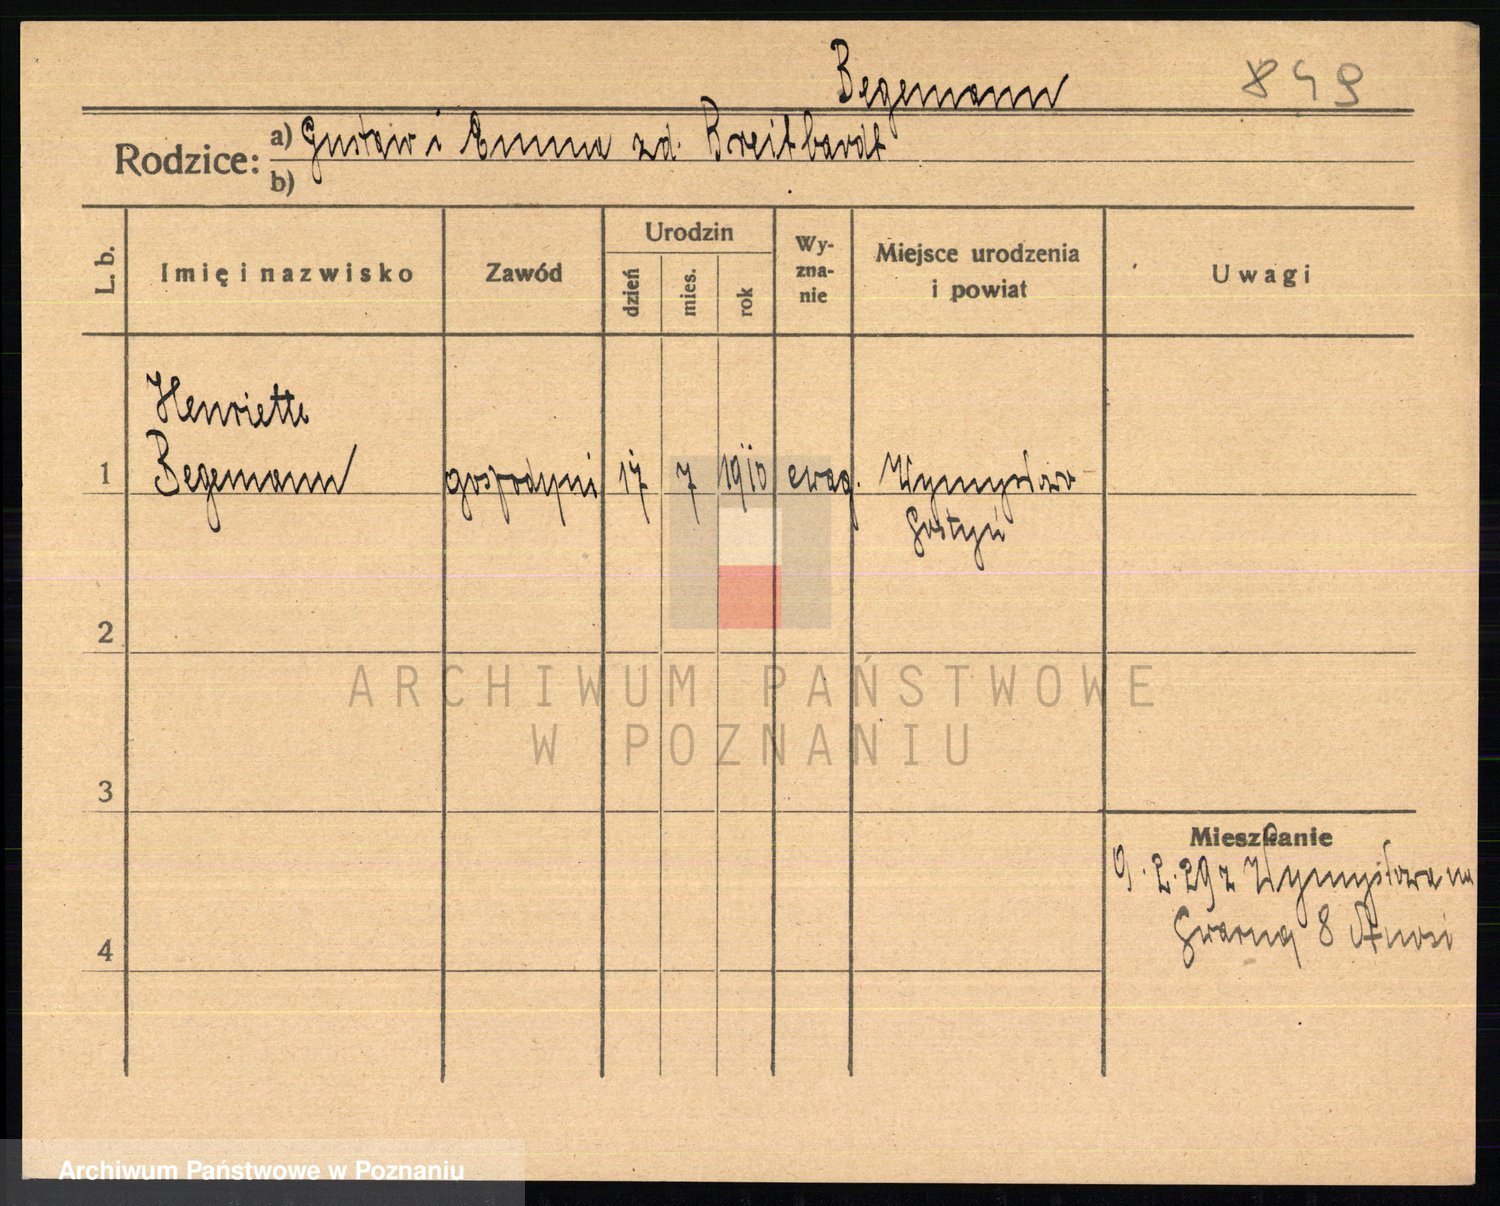 Begemann 849
Rodzice: a) Gustaw i Emma zd. Breitbardt
b)
L. b. Imię i nazwisko Zawód Urodzin dzień mies. rok Wy-zna-nie Miejsce urodzenia i powiat Uwagi
Henriette
1 Begemann gospodyni 17 7 1910 ewag. Wymysłowo
Gostyń
2
ARCHIWUM PAŃSTWOWE
W POZNANIU
3
Mieszkanie
9. 2. 29 z Wymysłowa na
4 Gwarną 8
Archiwum Państwowe w Poznaniu